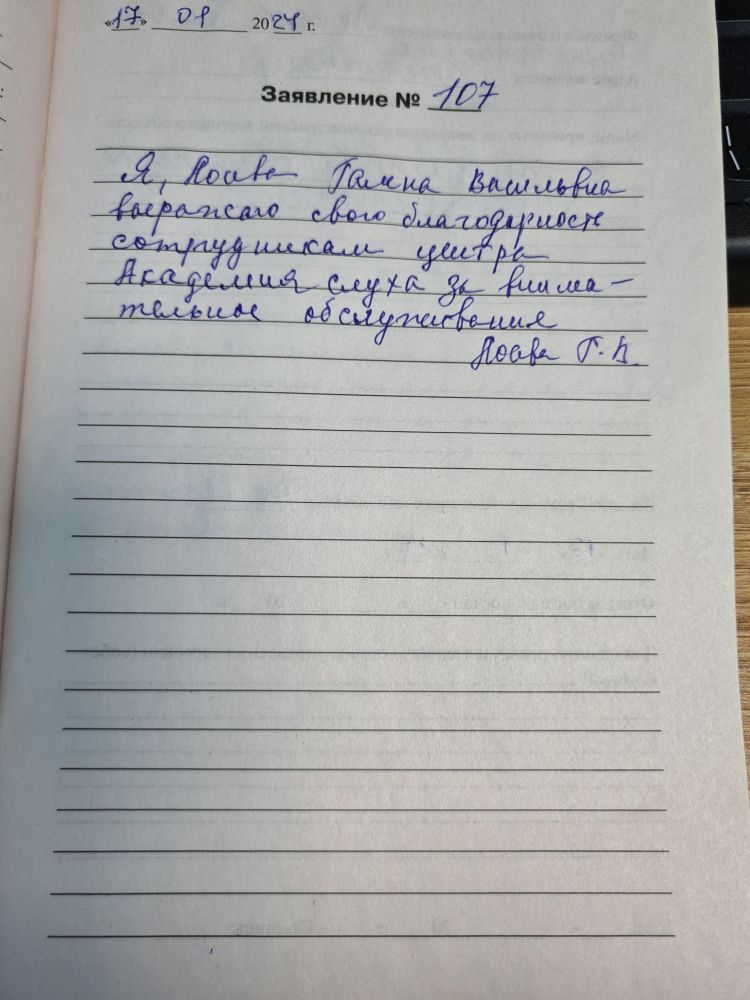 «17» 01 2024 г.
Заявление № 107
Я, Галина Васильвна
выражаю свою благодарность
сотрудникам центра
Академия слуха за внима-
тельное обслуживания
Г. В.